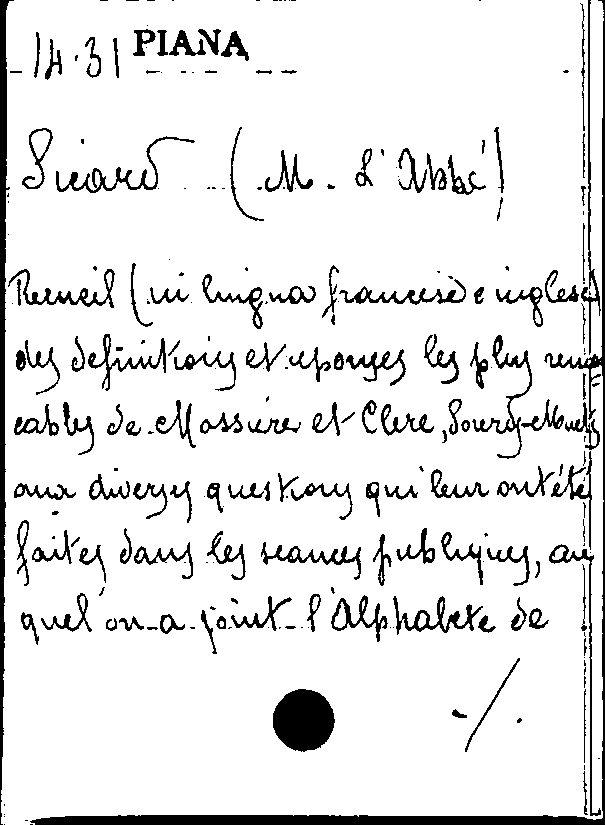 14.31 PIANA
Sicard (M. L'Abbé)
Recueil (in lingua francese e inglese)
des definitions et reponses les plus remar
cables de Massieu et Clerc, Sourds-Muets
aux diverses questions qui leur ont été
faites dans les seances publiques, au
quel on a joint l'Alphabete de
./.